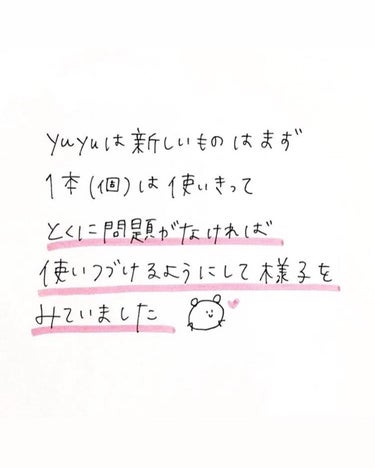 yuyuは新しいものはまず
1本(個)は使いきって
とくに問題がなければ
使いつづけるようにして様子を
みていました